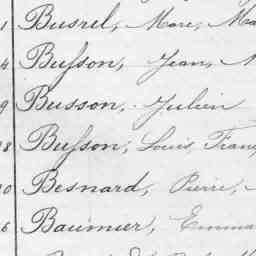 1 Busrel, Marc, Ma
4 Buſson, Jean, M
9 Busson, Julien
18 Buſson, Louis, Franç
20 Besnard, Pierre,
6 Baumier, Emma